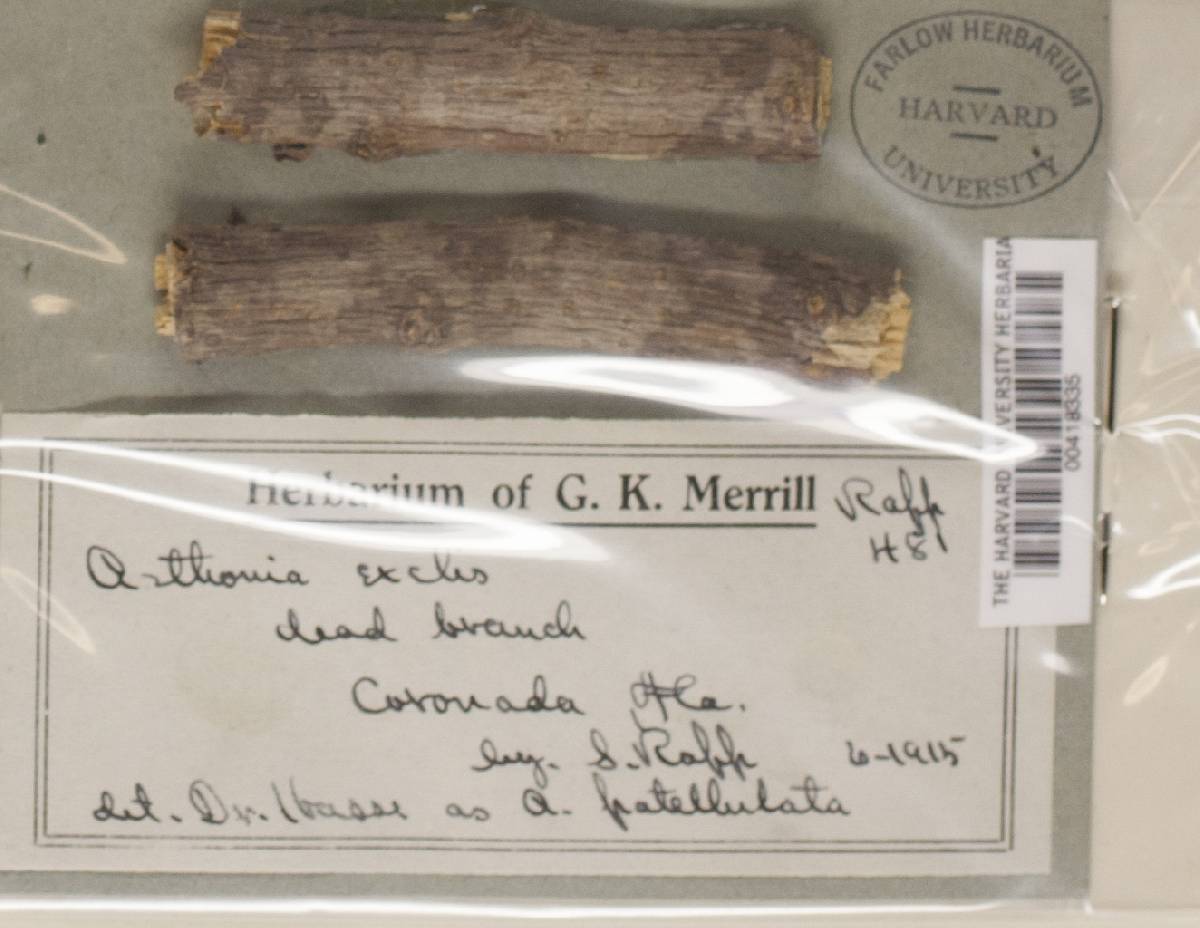 FARLOW HERBARIUM
HARVARD
UNIVERSITY
THE HARVARD UNIVERSITY HERBARIA
Herbarium of G. K. Merrill
Rapp
H 8
Arthonia
dead branch
Coronada Fla.
leg. S. Rapp 6-1915
det. Dr. Hasse as A. patellulata